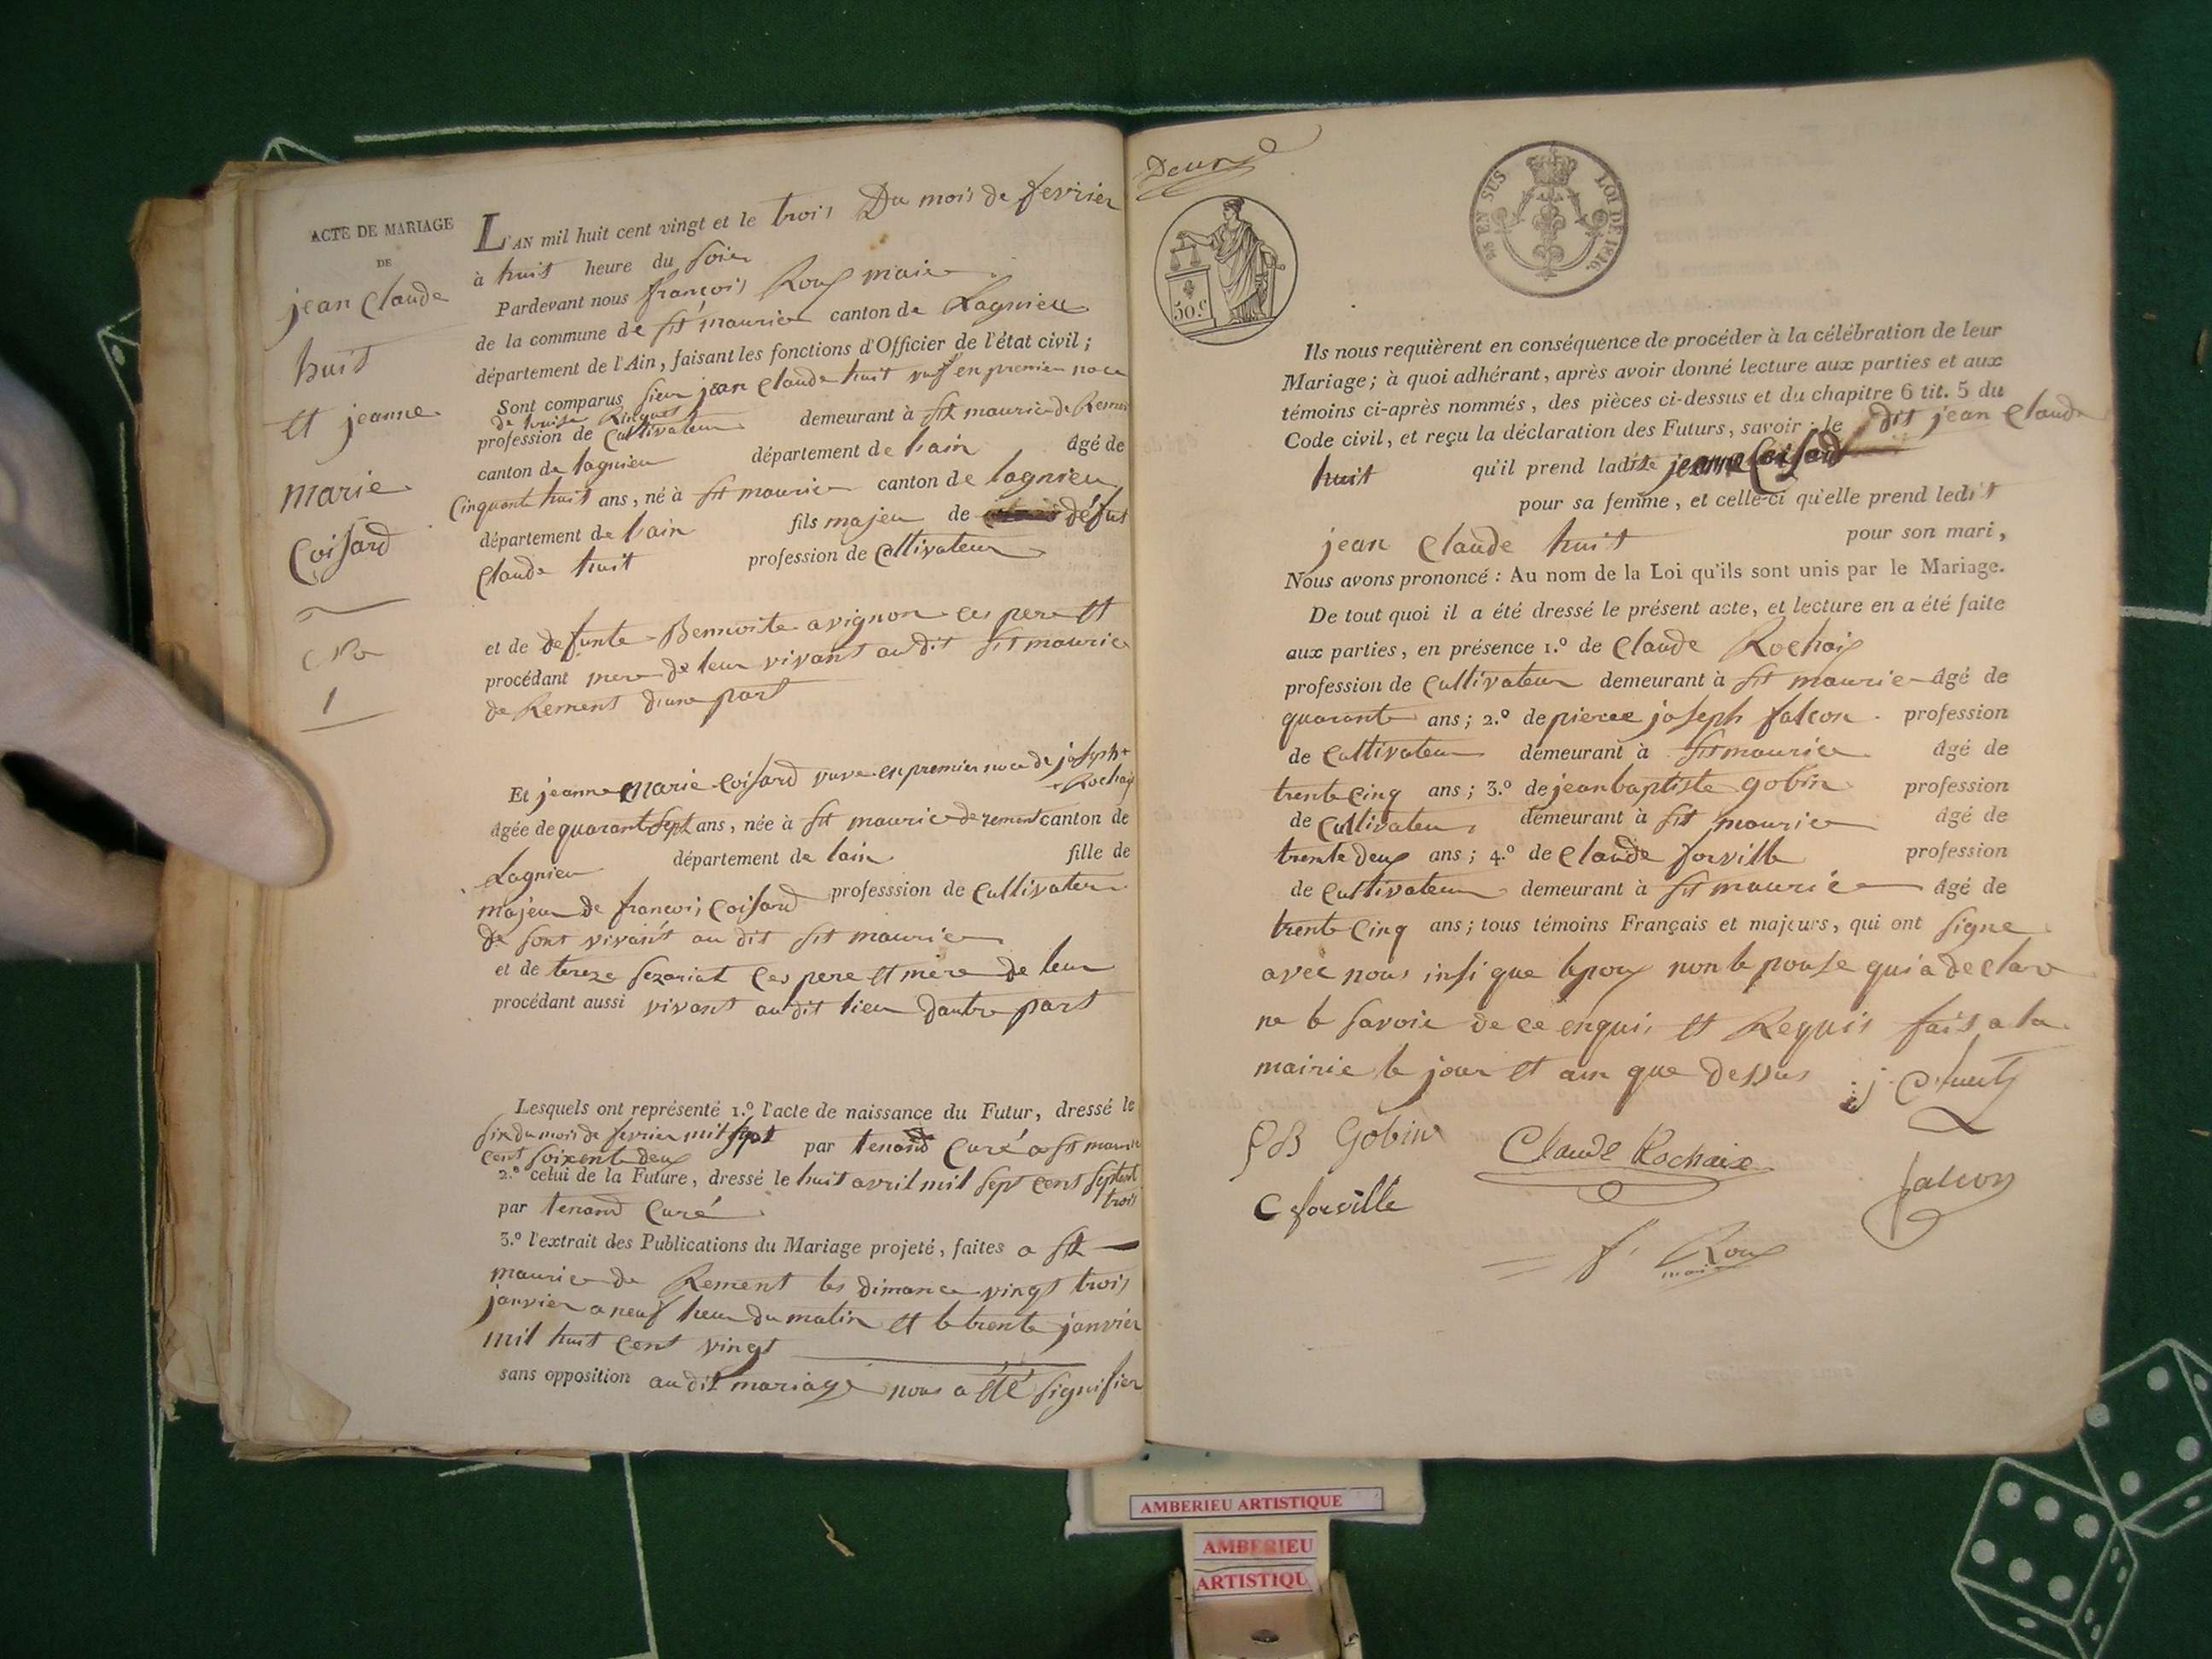 ACTE DE MARIAGE
DE
jean Claude
huit
et jeanne
marie
Coisard
No
1
L'AN mil huit cent vingt et le trois Du mois de fevrier
à huit heure du soir
Pardevant nous françois Roux maire
de la commune de st maurice canton de Lagnieu
département de l'Ain, faisant les fonctions d'Officier de l'état civil;
Sont comparus sieur jean Claude huit vuf en premier noce
de
profession de Cultivateur demeurant à st maurice de Remen
canton de lagnieu département de lain âgé de
Cinquante huit ans, né à st maurice canton de lagnieu
département de lain fils majeu de défut
Claude huit profession de Cultivateur
et de defunte Bennoite avignon ces pere et
procédant mere de leur vivant audit st maurice
de Rement d'une part
Et jeanne marie Coisard vuve en premier noce de joseph +
+ Rochaix
âgée de quarant sept ans, née à st maurice de rement canton de
Lagnieu département de lain fille de
majeur de francois Coisard professsion de Cultivateur
de sont vivant au dit st maurice
et de tereze sezariat Ces pere et mère de leur
procédant aussi vivant audit lieu dautre part
Lesquels ont représenté 1.º l'acte de naissance du Futur, dressé le
six du mois de fevrier mil sept par tenand Curé a st maurice
cent soixente deux
2.º celui de la Future, dressé le huit avril mil sept cent septent
trois
par tenand Curé
3.º l'extrait des Publications du Mariage projeté, faites a st
maurice de Rement les dimance vingt trois
janvier a neuf heur du matin et le trente janvier
mil huit cent vingt
sans opposition au dit mariage nous a été signifier
Deux
50.c
EN SUS
LOI DE 1816.
Ils nous requièrent en conséquence de procéder à la célébration de leur
Mariage; à quoi adhérant, après avoir donné lecture aux parties et aux
témoins ci-après nommés, des pièces ci-dessus et du chapitre 6 tit. 5 du
Code civil, et reçu la déclaration des Futurs, savoir: le dit jean Claude
huit qu'il prend ladite jeanne Coisard
pour sa femme, et celle-ci qu'elle prend ledit
jean Claude huit pour son mari,
Nous avons prononcé: Au nom de la Loi qu'ils sont unis par le Mariage.
De tout quoi il a été dressé le présent acte, et lecture en a été faite
aux parties, en présence 1.º de Claude Rochaix
profession de Cultivateur demeurant à st maurice âgé de
quarante ans; 2.º de pierre joseph falcon profession
de Cultivateur demeurant à st maurice âgé de
trente Cinq ans; 3.º de jean baptiste gobin profession
de Cultivateur demeurant à st maurice âgé de
trente deux ans; 4.º de Claude forville profession
de Cultivateur demeurant à st maurice âgé de
trente Cinq ans; tous témoins Français et majeurs, qui ont signe
avec nous insi que lepoux non lepouse qui a declare
ne le savoir de ce enquis et Requis fait a la
mairie le jour et am que dessus
j C huit
JB Gobin
Claude Rochaix
falcon
C forville
f. Roux
maire
AMBERIEU ARTISTIQUE
AMBERIEU
ARTISTIQU